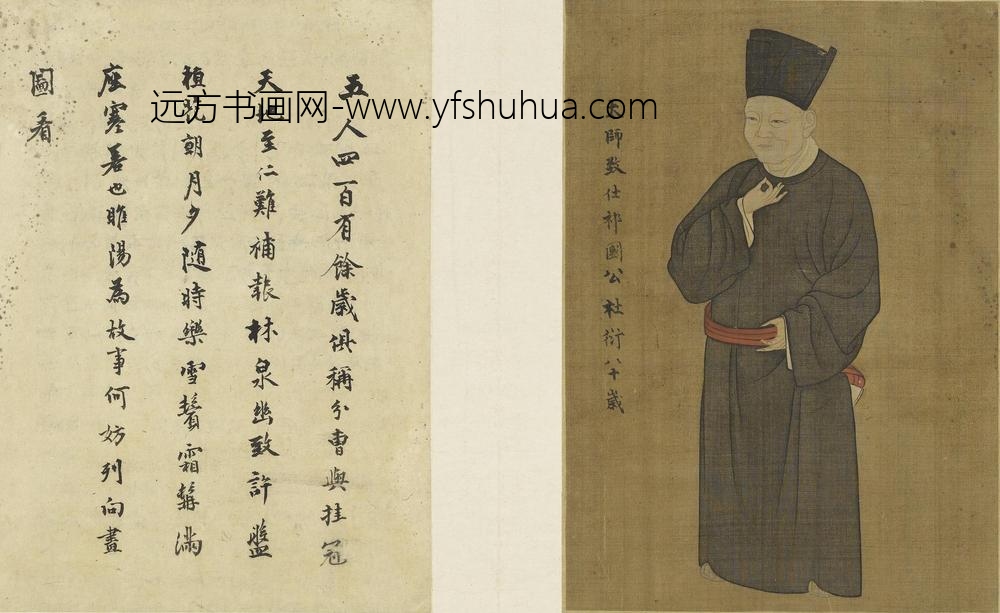 远方书画网-www.yfshuhua.com
師致仕祁國公杜衍八十歲
五人四百有餘歲俱稱分曹與挂冠
天地至仁難補報林泉幽致許盤
桓花朝月夕随時樂雪鬢霜髯滿
座寒若也睢陽為故事何妨列向畫
圖看